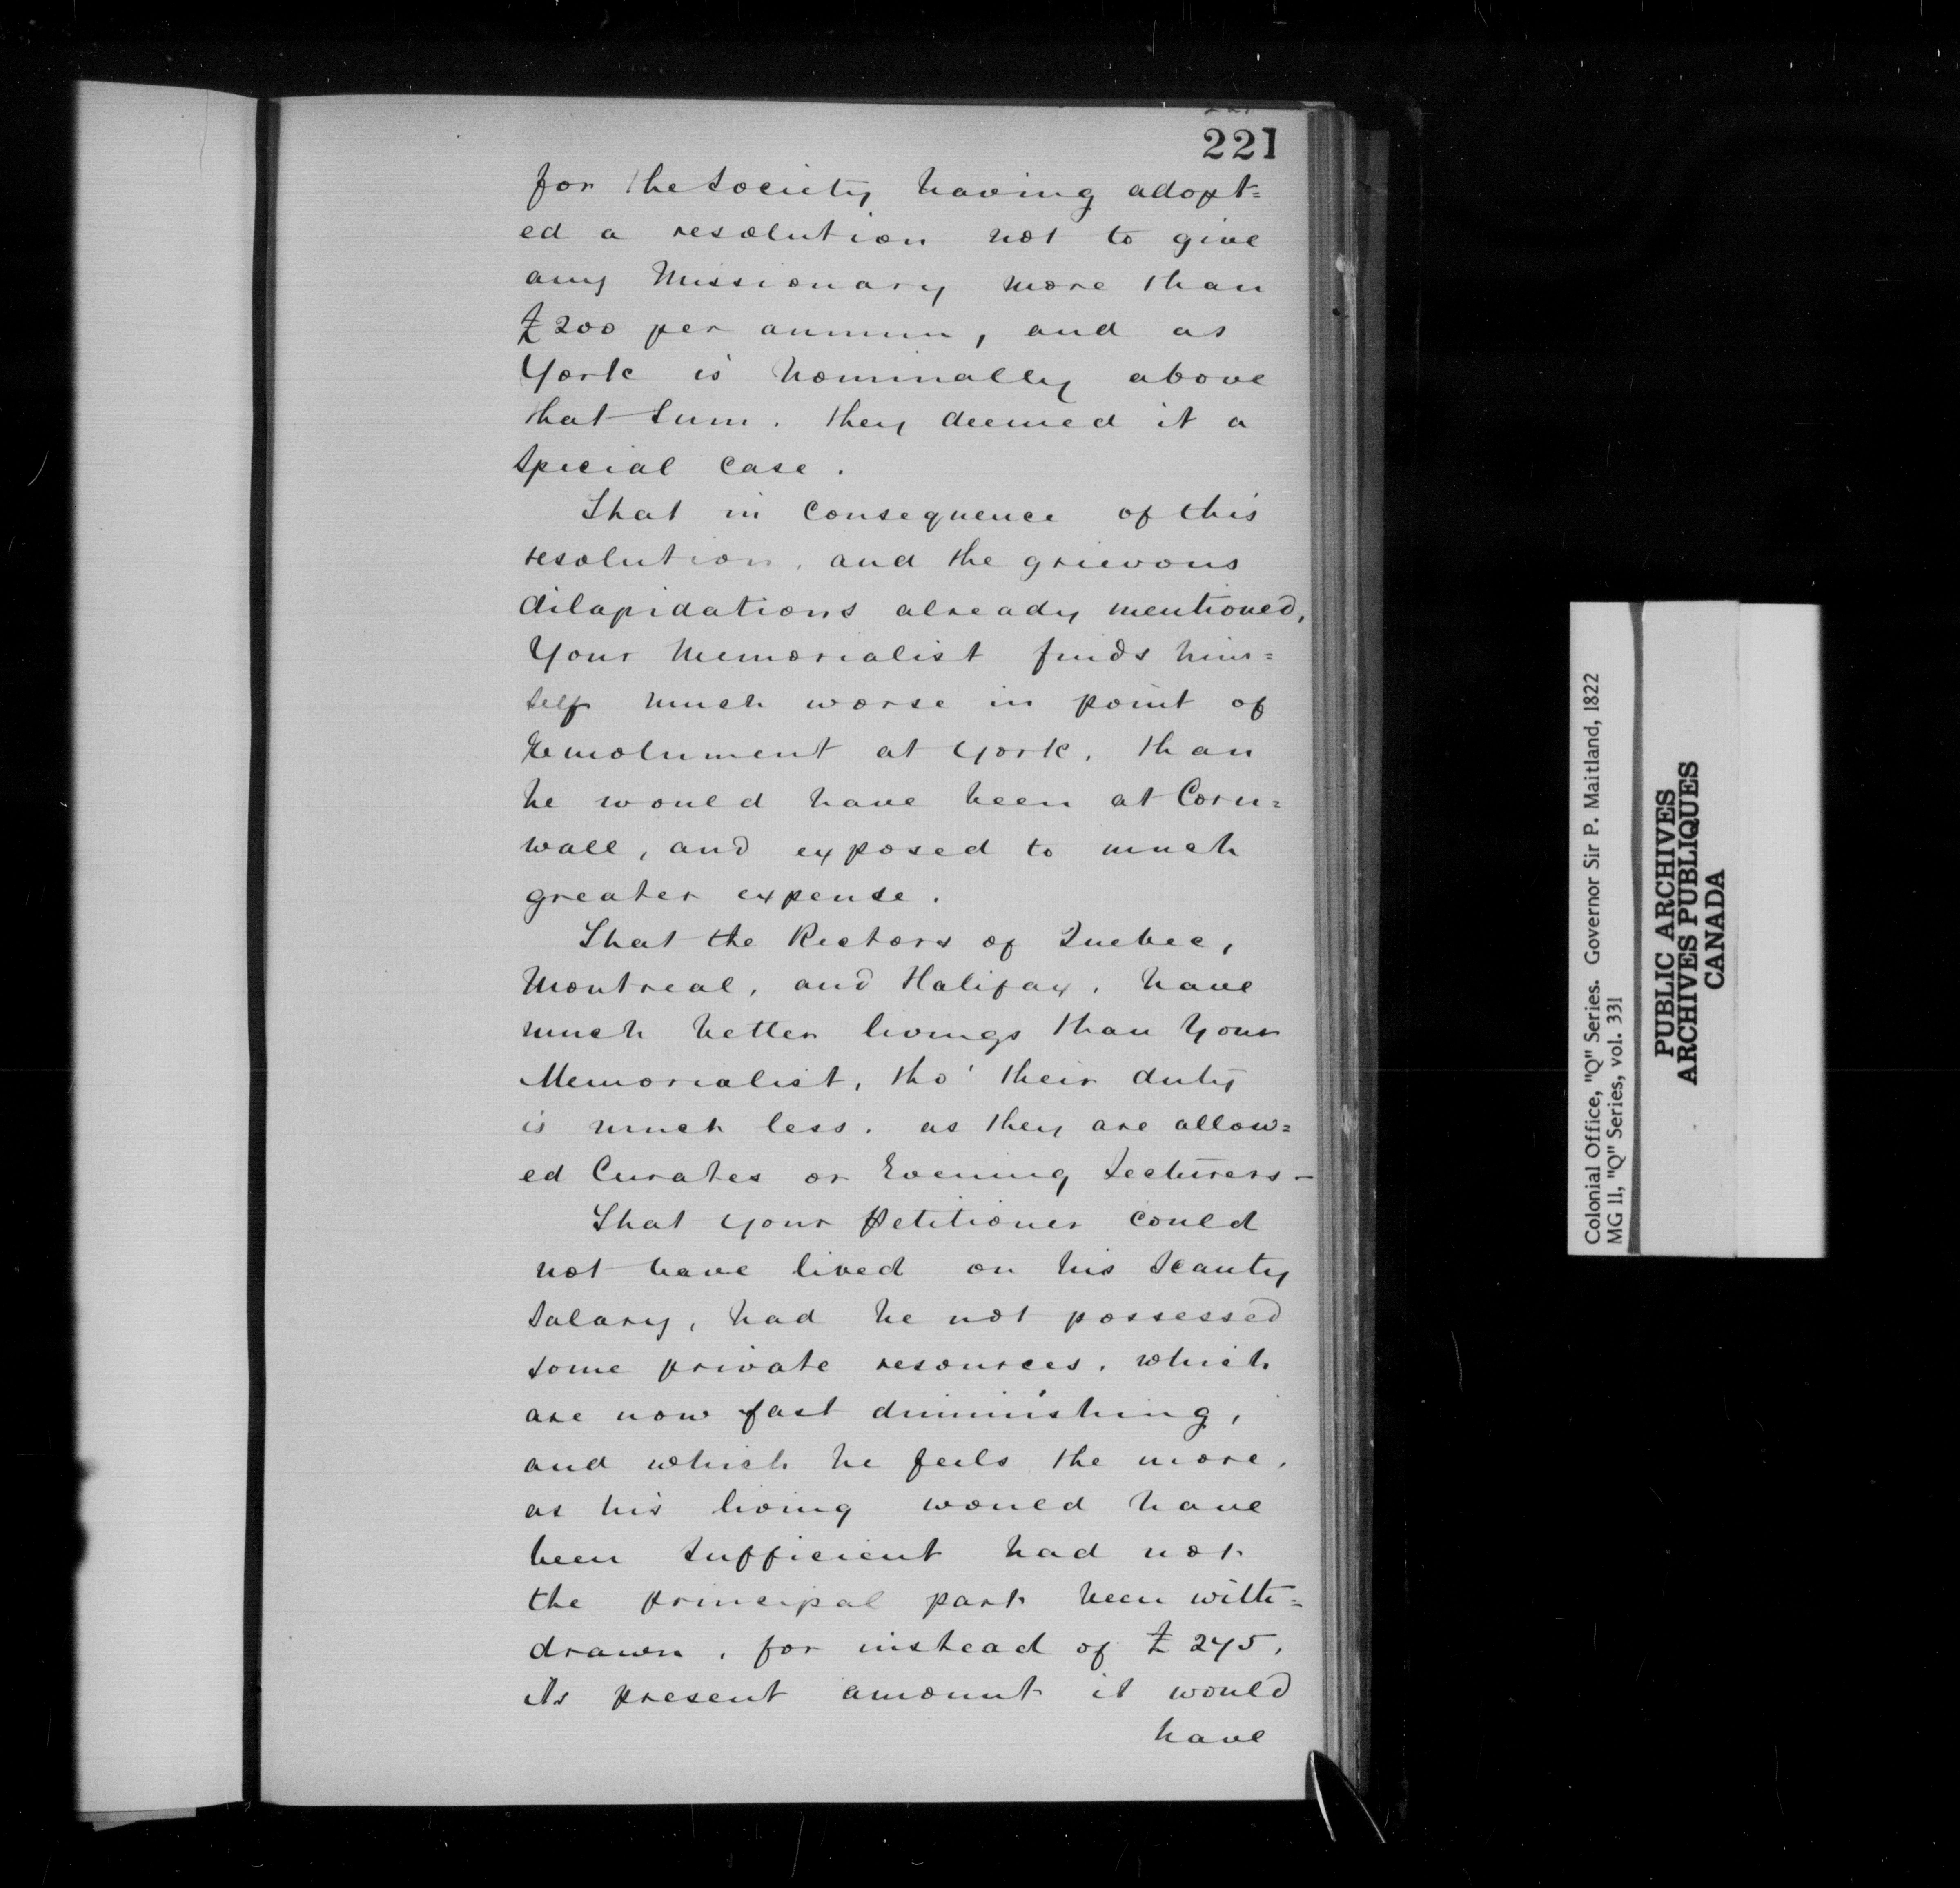 221
for the Society having adopt=
ed a resolution not to give
any Missionary more than
£200 per annum, and as
York is nominally above
that sum. they deemed it a
special case.
That in consequence of this
resolution, and the grievous
dilapidations already mentioned,
Your Memorialist finds him=
self much worse in point of
Emolument at York, than
he would have been at Corn=
wall, and exposed to much
greater expense.
That the Rectors of Quebec,
Montreal, and Halifax, have
much better livings than Your
Memorialist, tho' their duty
is much less, as they are allow=
ed Curates or Evening Lecturers-
That your Petitioner could
not have lived on his scanty
salary, had he not possessed
some private resources, which
are now fast diminishing,
and which he feels the more,
as his living would have
been sufficient had not
the principal part been with=
drawn, for instead of £275,
its present amount it would
have
Colonial Office, "Q" Series. Governor Sir P. Maitland, 1822
MG 11, "Q" Series, vol. 331
PUBLIC ARCHIVES
ARCHIVES PUBLIQUES
CANADA